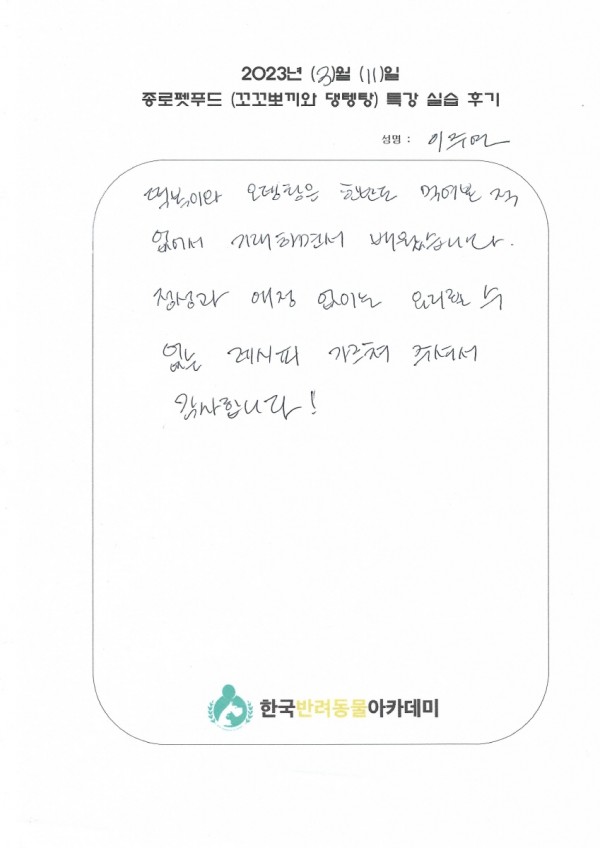 2023년 (3)월 (11)일
종로펫푸드 (꼬꼬뽀끼와 댕텡탕) 특강 실습 후기
성명 : 이주연
떡볶이와 오뎅탕은 한번도 먹어본 적
없어서 기대하면서 배웠습니다.
정성과 애정 없이는 요리할 수
없는 레시피 가르쳐 주셔서
감사합니다!
한국반려동물아카데미